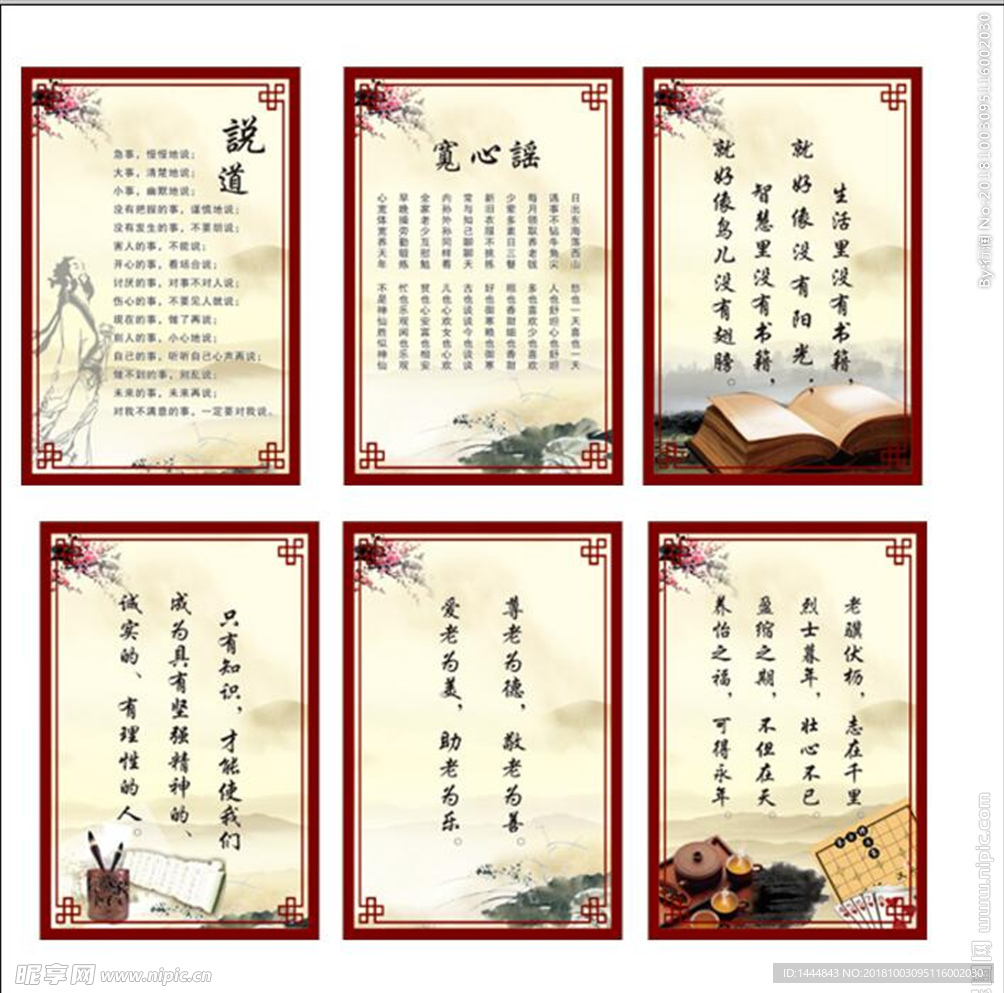 説道
急事，慢慢地说；
大事，清楚地说；
小事，幽默地说；
没有把握的事，谨慎地说；
没有发生的事，不要胡说；
害人的事，不能说；
开心的事，看场合说；
讨厌的事，对事不对人说；
伤心的事，不要见人就说；
现在的事，做了再说；
别人的事，小心地说；
自己的事，听听自己心声再说；
做不到的事，别乱说；
未来的事，未来再说；
对我不满意的事，一定要对我说。
寬心謡
日出东海落西山 愁也一天喜也一天
遇事不钻牛角尖 人也舒坦心也舒坦
每月领取养老钱 多也喜欢少也喜欢
少荤多素日三餐 粗也香甜细也香甜
新旧衣服不挑拣 好也御寒赖也御寒
常与知己聊聊天 古也谈谈今也谈谈
内孙外孙同样看 儿也心欢女也心欢
全家老少互慰勉 贫也心安富也相安
早晚操劳勤锻炼 忙也乐观闲也乐观
心宽体宽养天年 不是神仙胜似神仙
生活里没有书籍，
就好像没有阳光；
智慧里没有书籍，
就好像鸟儿没有翅膀。
只有知识，才能使我们
成为具有坚强精神的、
诚实的、有理性的人。
尊老为德，敬老为善。
爱老为美，助老为乐。
老骥伏枥，志在千里。
烈士暮年，壮心不已。
盈缩之期，不但在天。
养怡之福，可得永年。
昵享网 www.nipic.cn
By:行画 No.20181003095116002030
www.nipic.com
ID:1444843 NO:20181003095116002030